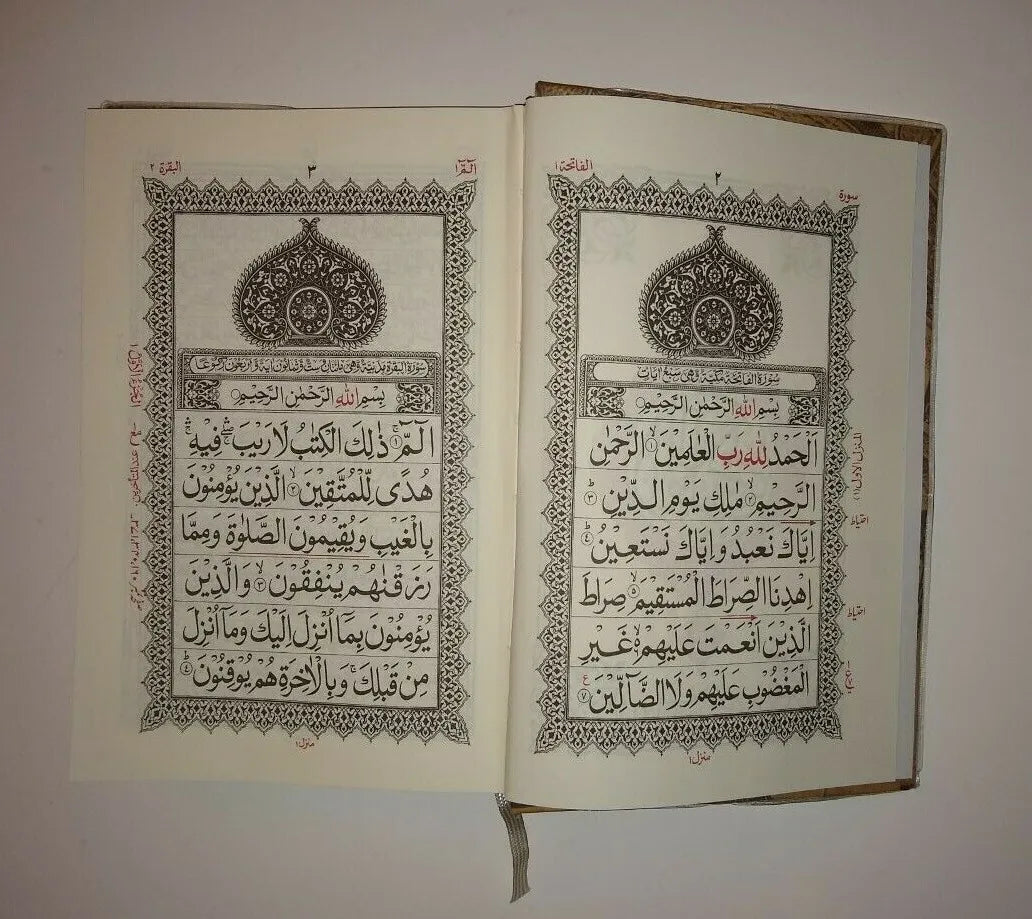 سورة
٢
الفاتحة ١
سورة الفاتحة مكية وهي سبع ايات
بِسْمِ اللهِ الرَّحْمٰنِ الرَّحِيْمِ
اَلْحَمْدُ لِلّٰهِ رَبِّ الْعٰلَمِيْنَ ۙ١ الرَّحْمٰنِ
الرَّحِيْمِ ۙ٢ مٰلِكِ يَوْمِ الدِّيْنِ ؕ٣
اِيَّاكَ نَعْبُدُ وَاِيَّاكَ نَسْتَعِيْنُ ؕ٤
اِهْدِنَا الصِّرَاطَ الْمُسْتَقِيْمَ ۙ٥ صِرَاطَ
الَّذِيْنَ اَنْعَمْتَ عَلَيْهِمْ ۙ٦ غَيْرِ
الْمَغْضُوْبِ عَلَيْهِمْ وَلَا الضَّآلِّيْنَ ٧ ع
المنزل الاول (١)
احتياط
احتياط
منزل ١
الٓمّٓ ١
٣
البقرة ٢
سورة البقرة مدنية وهي مائتان وست وثمانون اية واربعون ركوعا
بِسْمِ اللهِ الرَّحْمٰنِ الرَّحِيْمِ
الٓمّٓ ۚ١ ذٰلِكَ الْكِتٰبُ لَا رَيْبَ ۛ فِيْهِ ۛ
هُدًى لِّلْمُتَّقِيْنَ ۙ٢ الَّذِيْنَ يُؤْمِنُوْنَ
بِالْغَيْبِ وَيُقِيْمُوْنَ الصَّلٰوةَ وَمِمَّا
رَزَقْنٰهُمْ يُنْفِقُوْنَ ۙ٣ وَالَّذِيْنَ
يُؤْمِنُوْنَ بِمَآ اُنْزِلَ اِلَيْكَ وَمَآ اُنْزِلَ
مِنْ قَبْلِكَ ۚ وَبِالْاٰخِرَةِ هُمْ يُوْقِنُوْنَ ؕ٤
منزل ١